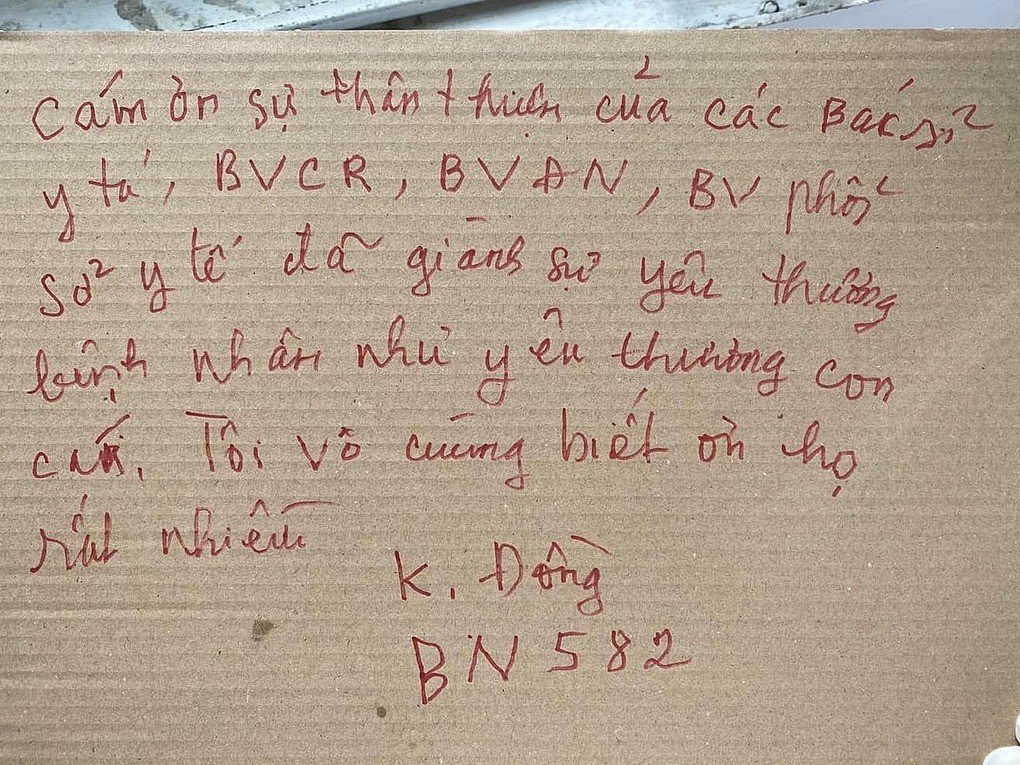 Cám ơn sự thân thiện của các Bác sĩ
y tá, BVCR, BVĐN, BV phổi
sở y tế đã giành sự yêu thương
bệnh nhân như yêu thương con
cái. Tôi vô cùng biết ơn họ
rất nhiều
K. Đồng
BN 582